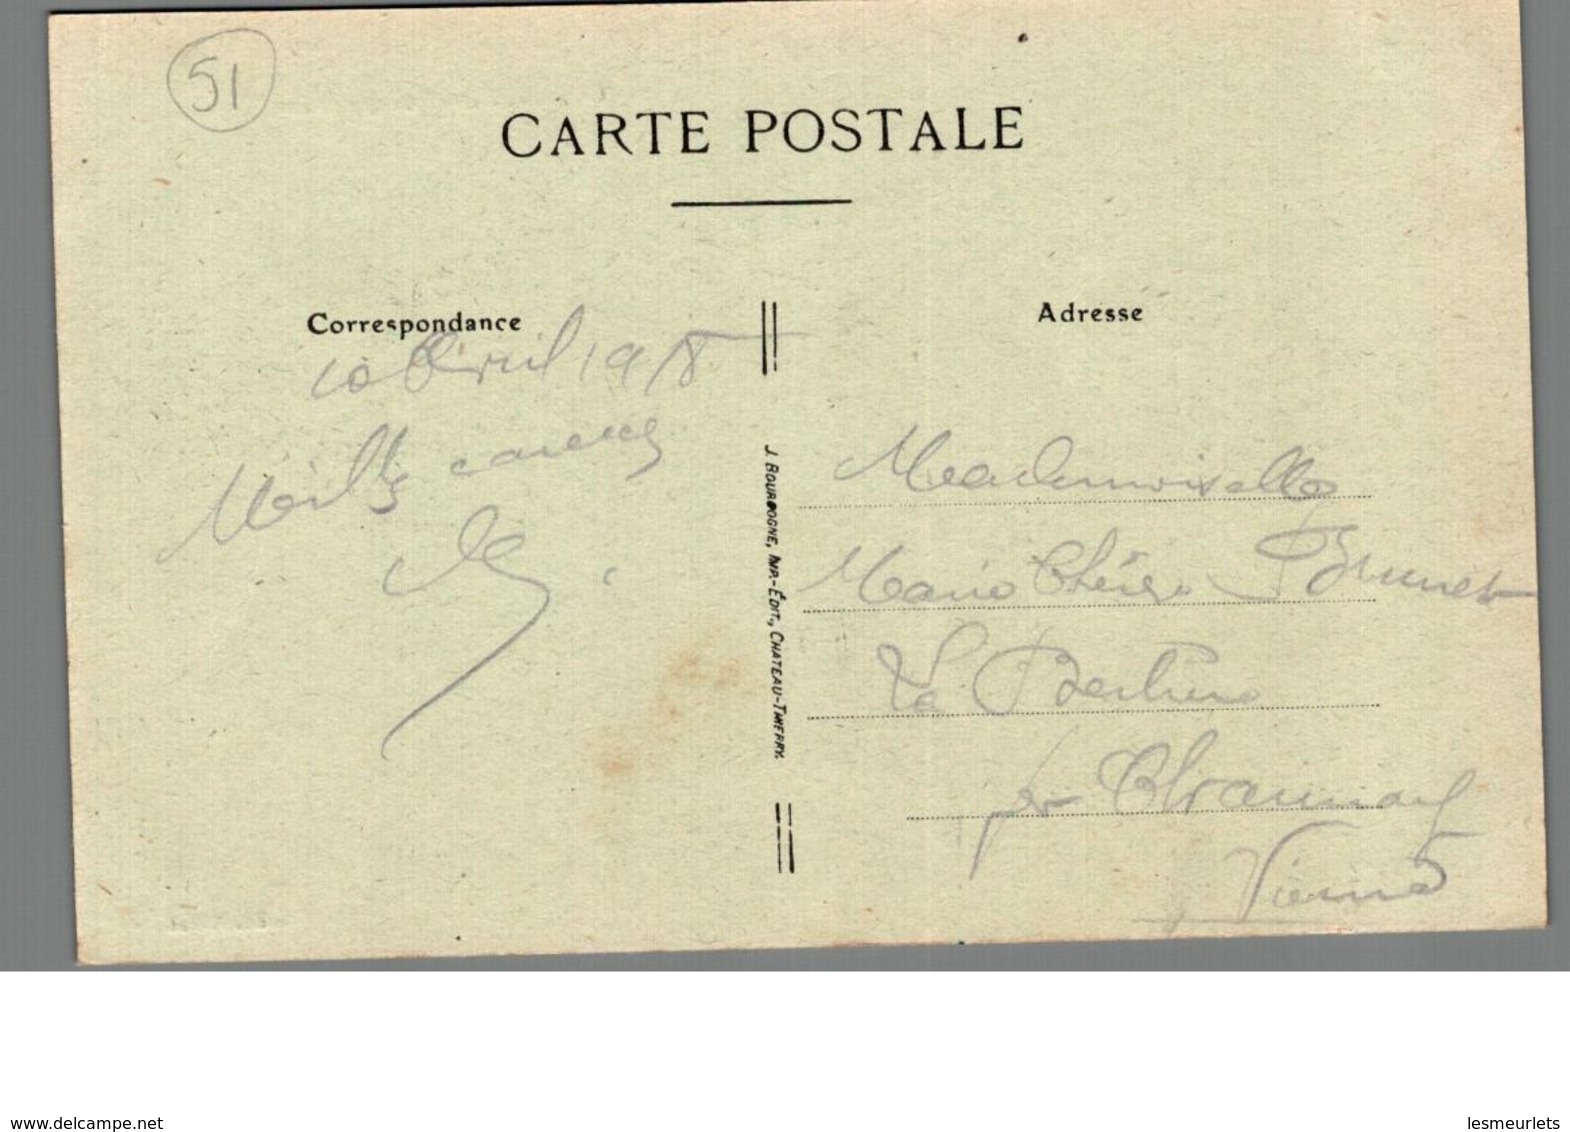 51
CARTE POSTALE
Correspondance
10 Avril 1918
Meills caresses
Adresse
Mademoiselle
Marie Thérèse Brunet
La
par Chaunay
Vienne
J. BOURGOGNE, IMP.-ÉDIT., CHATEAU-THIERRY.
www.delcampe.net
lesmeurlets